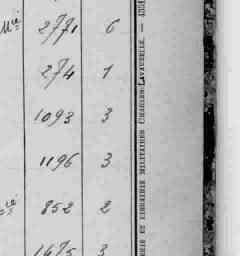 Mlé 2771 6
274 1
1093 3
1196 3
852 2
1675 3
RIE ET LIBRAIRIE MILITAIRES CHARLES-LAVAUZELLE. —